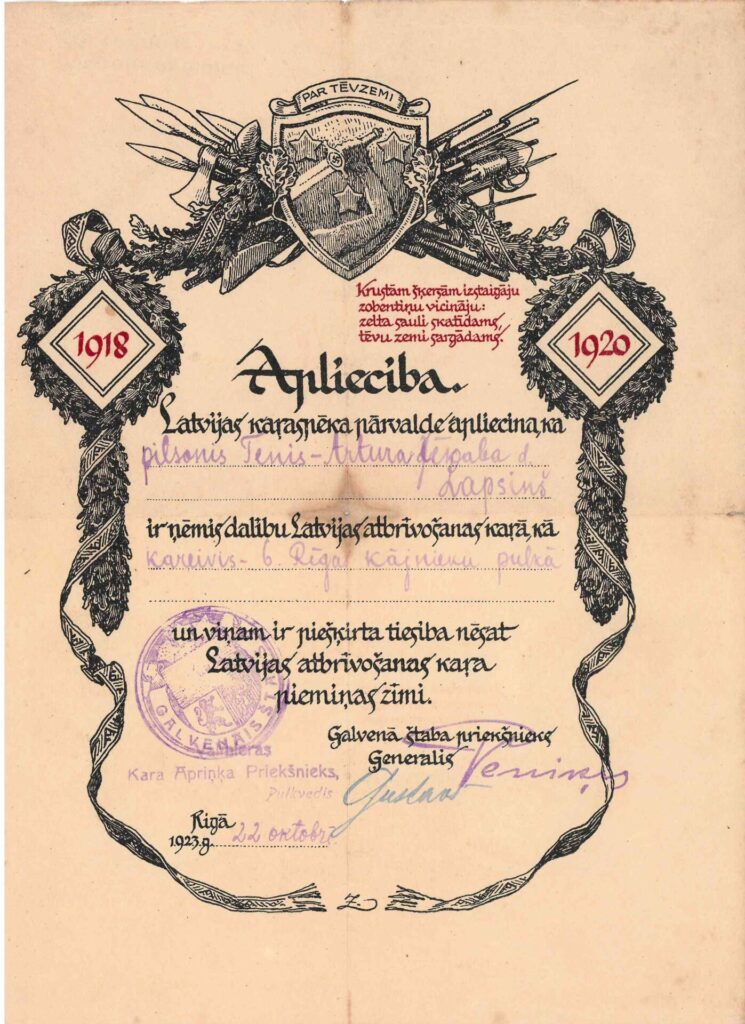 PAR TĒVZEMI
1918
1920
Krustām šķērsām izstaigāju
zobentiņu vicināju:
zelta sauli skatīdams,
tēvu zemi sargādams.
Apliecība.
Latvijas karaspēka pārvalde apliecina, ka
pilsonis Tenis-Arturs Jēkaba d.
Lapsiņš
ir ņēmis dalību Latvijas atbrīvošanas karā, kā
kareivis - 6. Rīgas kājnieku pulkā
un viņam ir piešķirta tiesība nēsāt
Latvijas atbrīvošanas kara
piemiņas zīmi.
GALVENAIS
Galvenā štaba priekšnieks
Ģenerālis
Kara Apriņķa Priekšnieks,
Pulkvedis
Rīgā
1923.g. 22 oktobrī
Z.